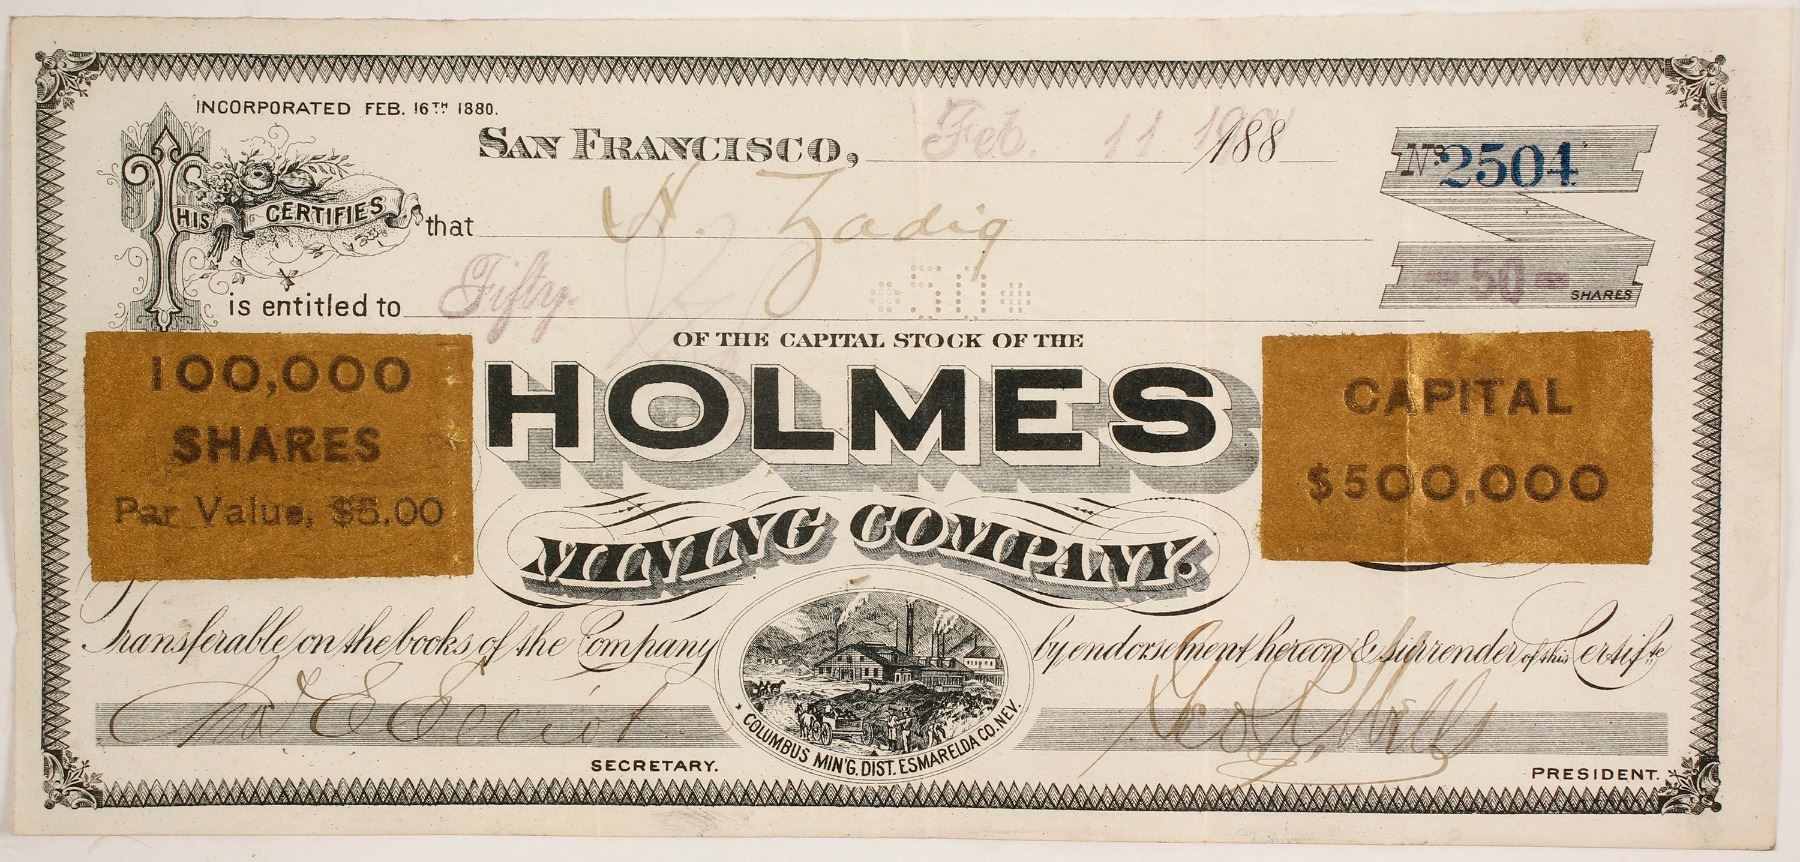 INCORPORATED FEB. 16TH 1880.
SAN FRANCISCO, Feb. 11 188
No 2504
THIS CERTIFIES that H. Zadig
is entitled to Fifty 50
-50- SHARES
OF THE CAPITAL STOCK OF THE
100,000
SHARES
Par Value, $5.00
HOLMES
MINING COMPANY.
CAPITAL
$500,000
Transferable on the books of the Company by endorsement hereon & surrender of this Certifte
COLUMBUS MIN'G. DIST. ESMARELDA CO. NEV.
Chas E Elliot
SECRETARY.
Geo R. Wells
PRESIDENT.